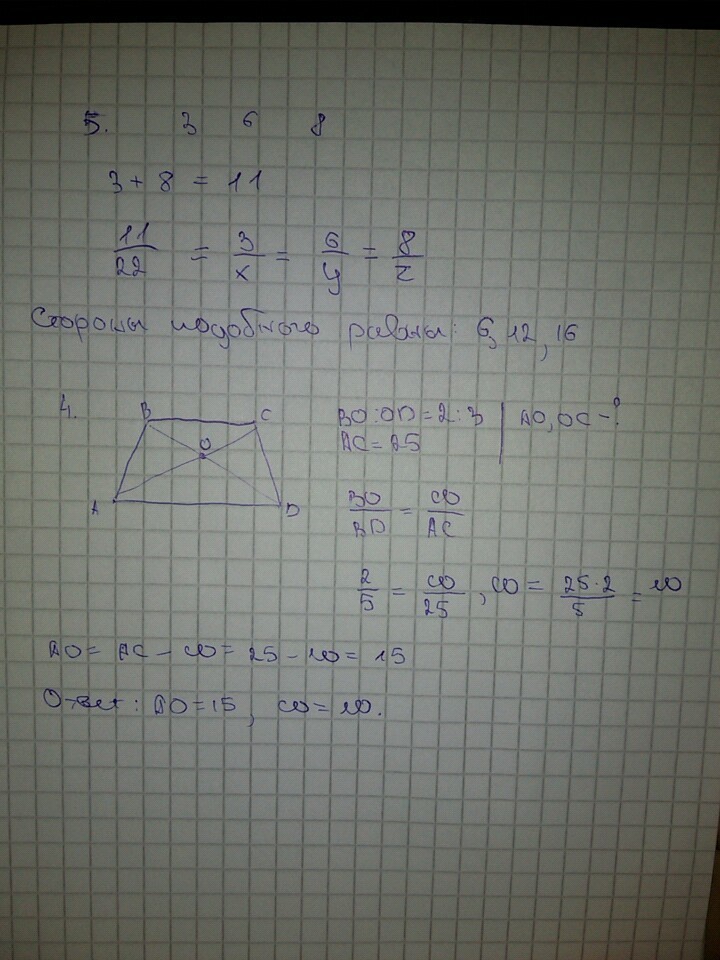 5. 3 6 8
3 + 8 = 11
11/22 = 3/x = 6/y = 8/z
Стороны подобного равны: 6, 12, 16
4. B C O A D
BO:OD=2:3 | AO, OC -?
AC=25
BO/BD = CO/AC
2/5 = CO/25 , CO = 25·2/5 = 10
AO = AC - CO = 25 - 10 = 15
Ответ: AO=15, CO=10.